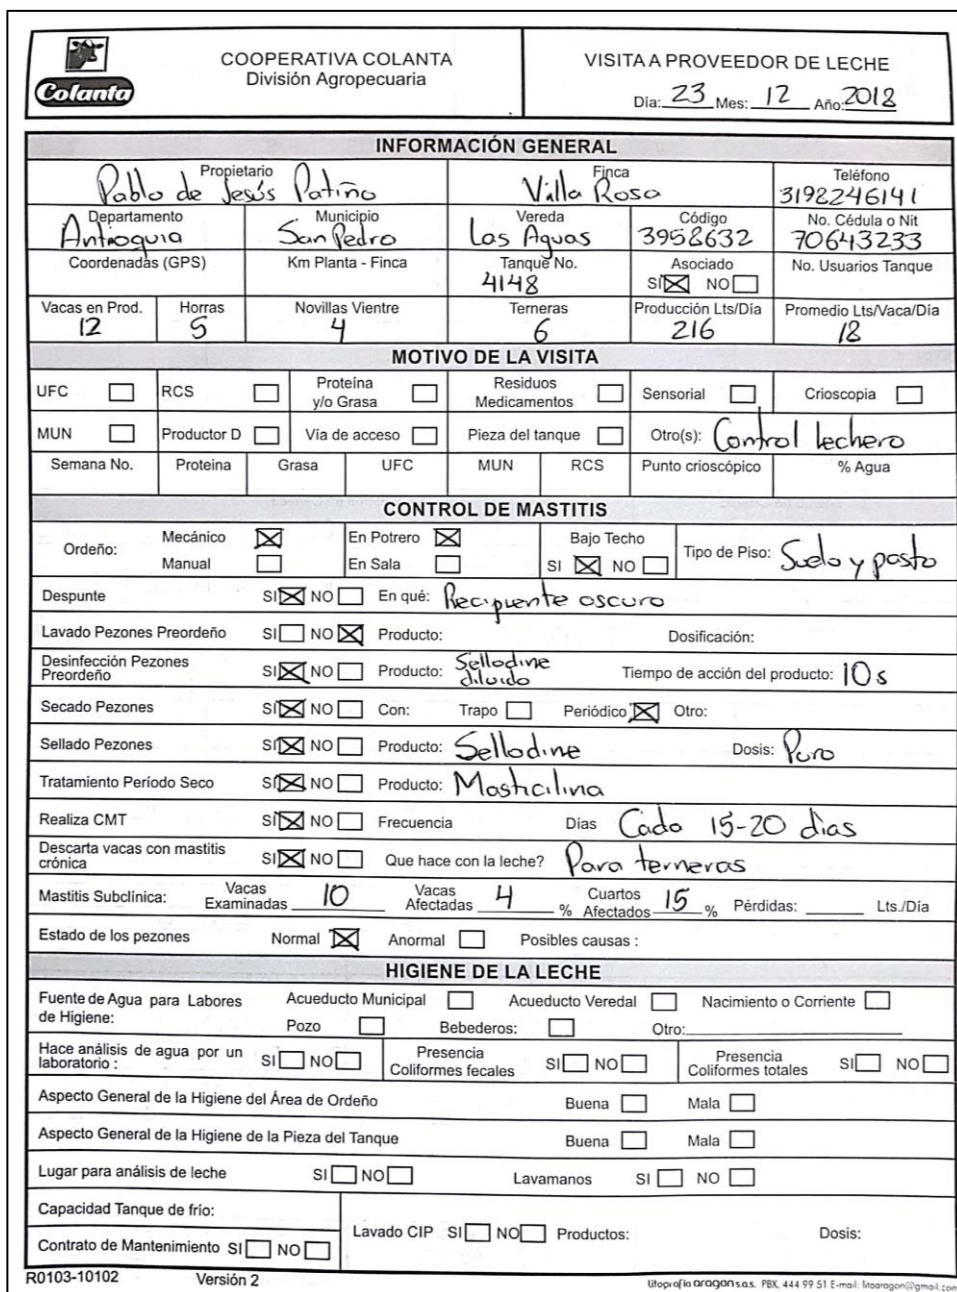 Colanta
COOPERATIVA COLANTA
División Agropecuaria
VISITA A PROVEEDOR DE LECHE
Día: 23 Mes: 12 Año: 2018
INFORMACIÓN GENERAL
Propietario Finca Teléfono
Pablo de Jesús Patiño Villa Rosa 3192246141
Departamento Municipio Vereda Código No. Cédula o Nit
Antioquia San Pedro Las Aguas 3958632 70643233
Coordenadas (GPS) Km Planta - Finca Tanque No. Asociado No. Usuarios Tanque
4148 SI ☒ NO ☐
Vacas en Prod. Horras Novillas Vientre Terneras Producción Lts/Día Promedio Lts/Vaca/Día
12 5 4 6 216 18
MOTIVO DE LA VISITA
UFC ☐ RCS ☐ Proteína y/o Grasa ☐ Residuos Medicamentos ☐ Sensorial ☐ Crioscopia ☐
MUN ☐ Productor D ☐ Vía de acceso ☐ Pieza del tanque ☐ Otro(s): Control lechero
Semana No. Proteina Grasa UFC MUN RCS Punto crioscópico % Agua
CONTROL DE MASTITIS
Ordeño: Mecánico ☒ En Potrero ☒ Bajo Techo Tipo de Piso: Suelo y pasto
Manual ☐ En Sala ☐ SI ☒ NO ☐
Despunte SI ☒ NO ☐ En qué: Recipiente oscuro
Lavado Pezones Preordeño SI ☐ NO ☒ Producto: Dosificación:
Desinfección Pezones Preordeño SI ☒ NO ☐ Producto: Sellodine diluido Tiempo de acción del producto: 10s
Secado Pezones SI ☒ NO ☐ Con: Trapo ☐ Periódico ☒ Otro:
Sellado Pezones SI ☒ NO ☐ Producto: Sellodine Dosis: Puro
Tratamiento Período Seco SI ☒ NO ☐ Producto: Masticilina
Realiza CMT SI ☒ NO ☐ Frecuencia Días Cada 15-20 dias
Descarta vacas con mastitis crónica SI ☒ NO ☐ Que hace con la leche? Para terneras
Mastitis Subclínica: Vacas Examinadas 10 Vacas Afectadas 4 % Cuartos Afectados 15 % Pérdidas: ______ Lts./Día
Estado de los pezones Normal ☒ Anormal ☐ Posibles causas :
HIGIENE DE LA LECHE
Fuente de Agua para Labores de Higiene: Acueducto Municipal ☐ Acueducto Veredal ☐ Nacimiento o Corriente ☐
Pozo ☐ Bebederos: ☐ Otro:
Hace análisis de agua por un laboratorio : SI ☐ NO ☐ Presencia Coliformes fecales SI ☐ NO ☐ Presencia Coliformes totales SI ☐ NO ☐
Aspecto General de la Higiene del Área de Ordeño Buena ☐ Mala ☐
Aspecto General de la Higiene de la Pieza del Tanque Buena ☐ Mala ☐
Lugar para análisis de leche SI ☐ NO ☐ Lavamanos SI ☐ NO ☐
Capacidad Tanque de frío:
Lavado CIP SI ☐ NO ☐ Productos: Dosis:
Contrato de Mantenimiento SI ☐ NO ☐
R0103-10102 Versión 2 litografía aragon s.a.s. PBX. 444 99 51 E-mail: litoaragon@gmail.com